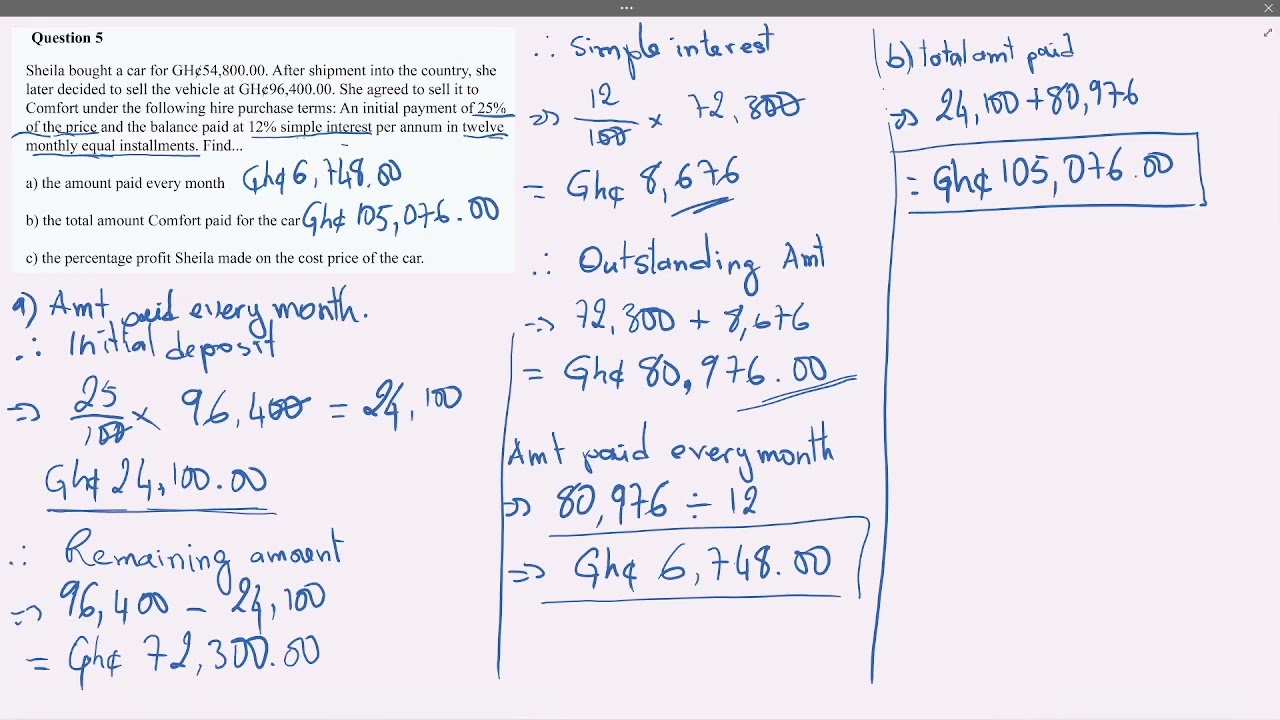 Question 5
Sheila bought a car for GH¢54,800.00. After shipment into the country, she
later decided to sell the vehicle at GH¢96,400.00. She agreed to sell it to
Comfort under the following hire purchase terms: An initial payment of 25%
of the price and the balance paid at 12% simple interest per annum in twelve
monthly equal installments. Find...
a) the amount paid every month Gh¢ 6,748.00
b) the total amount Comfort paid for the car Gh¢ 105,076.00
c) the percentage profit Sheila made on the cost price of the car.
a) Amt paid every month.
∴ Initial deposit
⇒ 25/100 × 96,400 = 24,100
Gh¢ 24,100.00
∴ Remaining amount
⇒ 96,400 - 24,100
= Gh¢ 72,300.00
∴ Simple interest
⇒ 12/100 × 72,300
= Gh¢ 8,676
∴ Outstanding Amt
⇒ 72,300 + 8,676
= Gh¢ 80,976.00
Amt paid every month
⇒ 80,976 ÷ 12
⇒ Gh¢ 6,748.00
b) total amt paid
⇒ 24,100 + 80,976
= Gh¢ 105,076.00